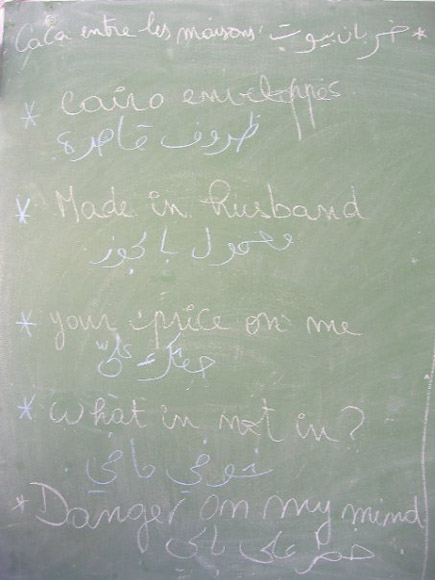 Caca entre les maisons: خربان بيوت *
* Cairo enveloppés
ظروف قاهرة
* Made in husband
معمول بالجوز
* your price on me
حقك عليّ
* What in not in?
شو في ما في
* Danger on my mind
خطر على بالي